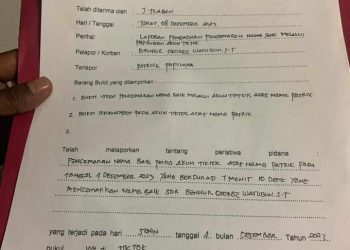 Telah diterima oleh : J. SKABEN
Hari / Tanggal : JUMAT, 08 DESEMBER 2023
Perihal : LAPORAN PENGADUAN PENCEMARAN NAMA BAIK MELALUI
POSTINGAN AKUN TIKTOK
Pelapor / Korban : BENHUR GEORGE WATUBUN, S.T
Terlapor : PATRICK PAPILAYA
Barang Bukti yang dilampirkan :
1. BUKTI VIDEO PENCEMARAN NAMA BAIK MELALUI AKUN TIKTOK ATAS NAMA PATRIK
2. BUKTI PADA AKUN TIKTOK ATAS NAMA PATRIK
3.
Telah melaporkan tentang peristiwa pidana :
PENCEMARAN NAMA BAIK PADA AKUN TIKTOK ATAS NAMA PATRIK PADA
TANGGAL 4 DESEMBER 2023 YANG BERDURASI 7 MENIT 10 DETIK YANG
MENCEMARKAN NAMA BAIK SDR BENHUR GEORGE WATUBUN S.T
yang terjadi pada hari SENIN tanggal 4 bulan DESEMBER Tahun 2023